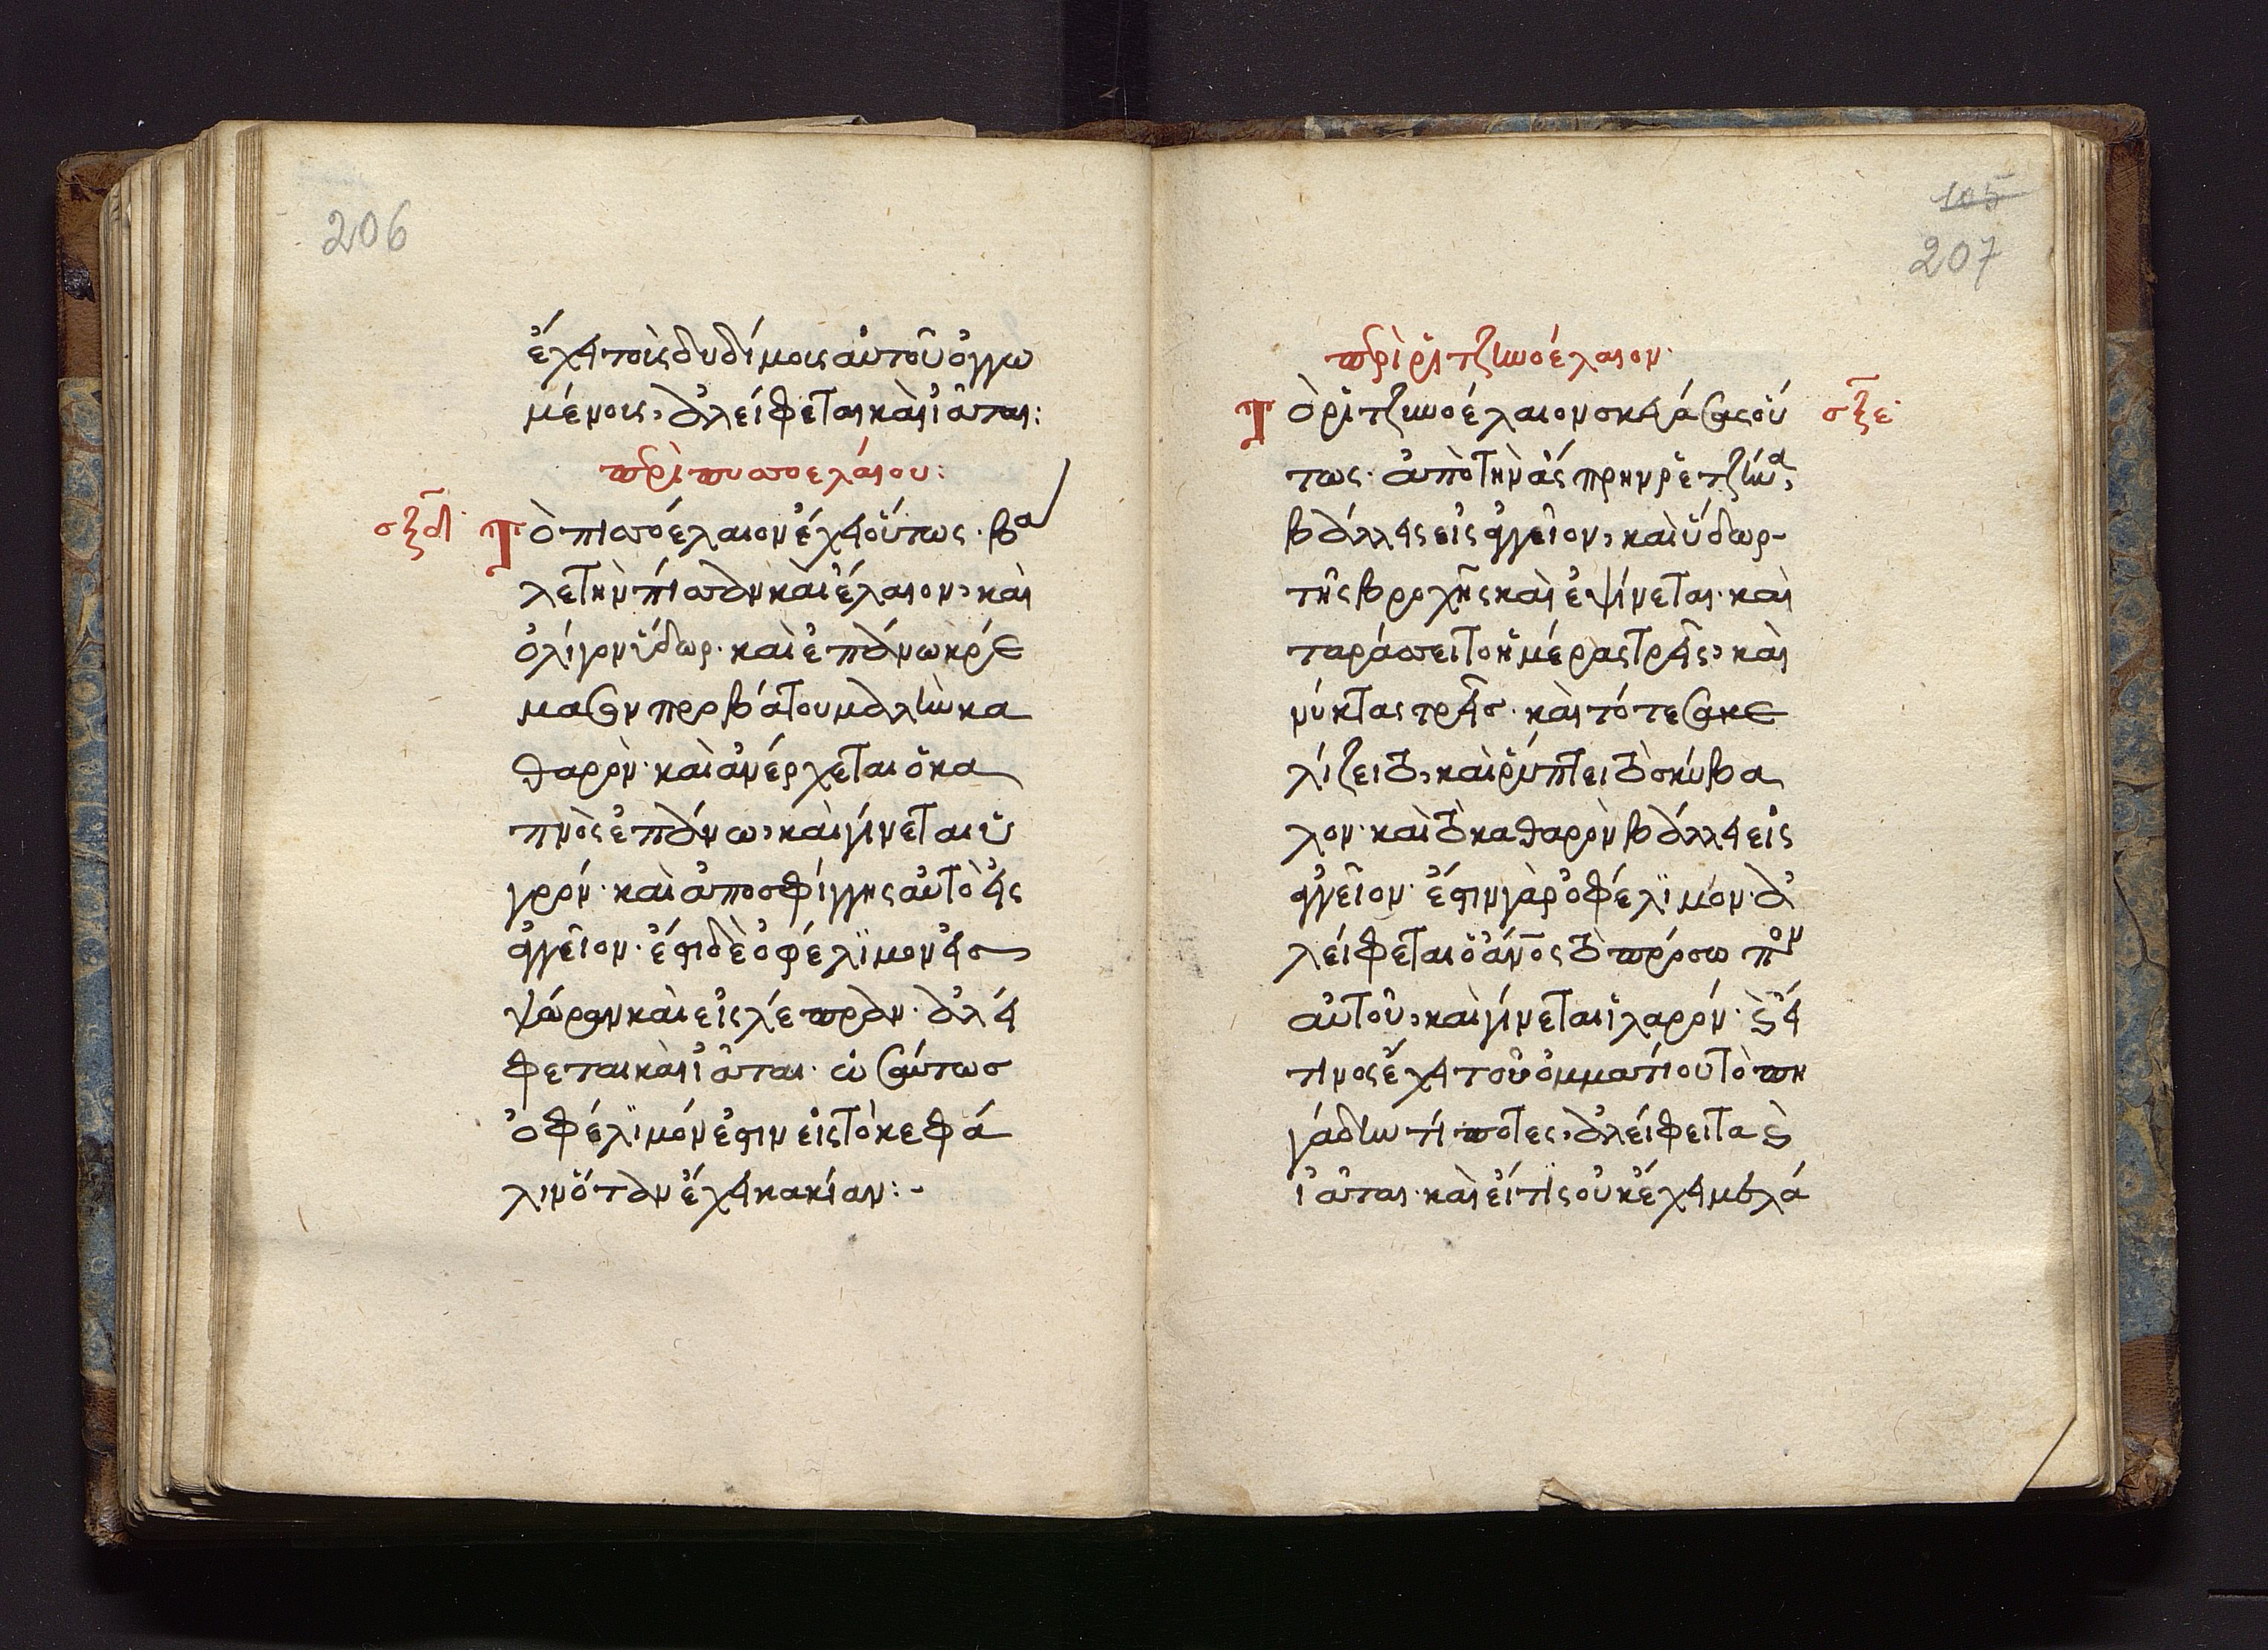 206
ἔχει τοῖς διδίμοις αὐτοῦ ὀγγω
μένοις, ἀλείφεται καὶ ἰᾶται:
περὶ πισσοελάιου:
σξδ Τὸ πισσοέλαιον ἔχει οὕτως· βα
λε τὴν πίσσαν καὶ ἔλαιον, καὶ
ὀλίγον ὕδωρ· καὶ ἐπάνω κρέ
μασον προβάτου μαλὶν κα
θαρὸν· καὶ ἀνέρχεται ὁ κα
πνὸς ἐπάνω, καὶ γίνεται ὑ
γρόν· καὶ ἀποσφίγγης αὐτὸ εἰς
ἀγγεῖον· ἔστι δὲ ὀφέλϊμον εἰσ
ψώραν καὶ εἰς λέπραν· ἀλεί
φεται καὶ ἰᾶται· ὡσαύτωσ
ὀφέλϊμόν ἐστιν εἰς τὸ κεφά
λιν ὅταν ἔχει κακίαν:-
105
207
περὶ ῥιτζινοέλαιον·
Τὸ ῥιτζινοέλαιον σκευάσεις οὕ σξε
τως· ἀπὸ τὴν ἄσπρην ῥετζίνα,
βάλλεις εἰς ἀγγεῖον, καὶ ὕδωρ
τῆς βροχῆς καὶ ἐψίνεται· καὶ
ταράσσει τὸ ἡμέρας τρεῖς, καὶ
νύκτας τρεῖσ· καὶ τότε σακε
λίζει τὸ, καὶ ῥίπτει τὸ σκύβα
λον· καὶ τὸ καθαρὸν βάλλει εἰς
ἀγγεῖον· ἔστιν γὰρ ὀφέλϊμον· ἀ
λείφεται ὁ ἄνος τὸ πρόσωπον
αὐτοῦ, καὶ γίνεται ἱλαρόν· καὶ εἴ
τινος ἔχει τοῦ ὀμματίου τὸ πη
γάδιν τίποτες, ἀλείφειται καὶ
ἰᾶται· καὶ εἴ τις οὐκ ἔχει μελά